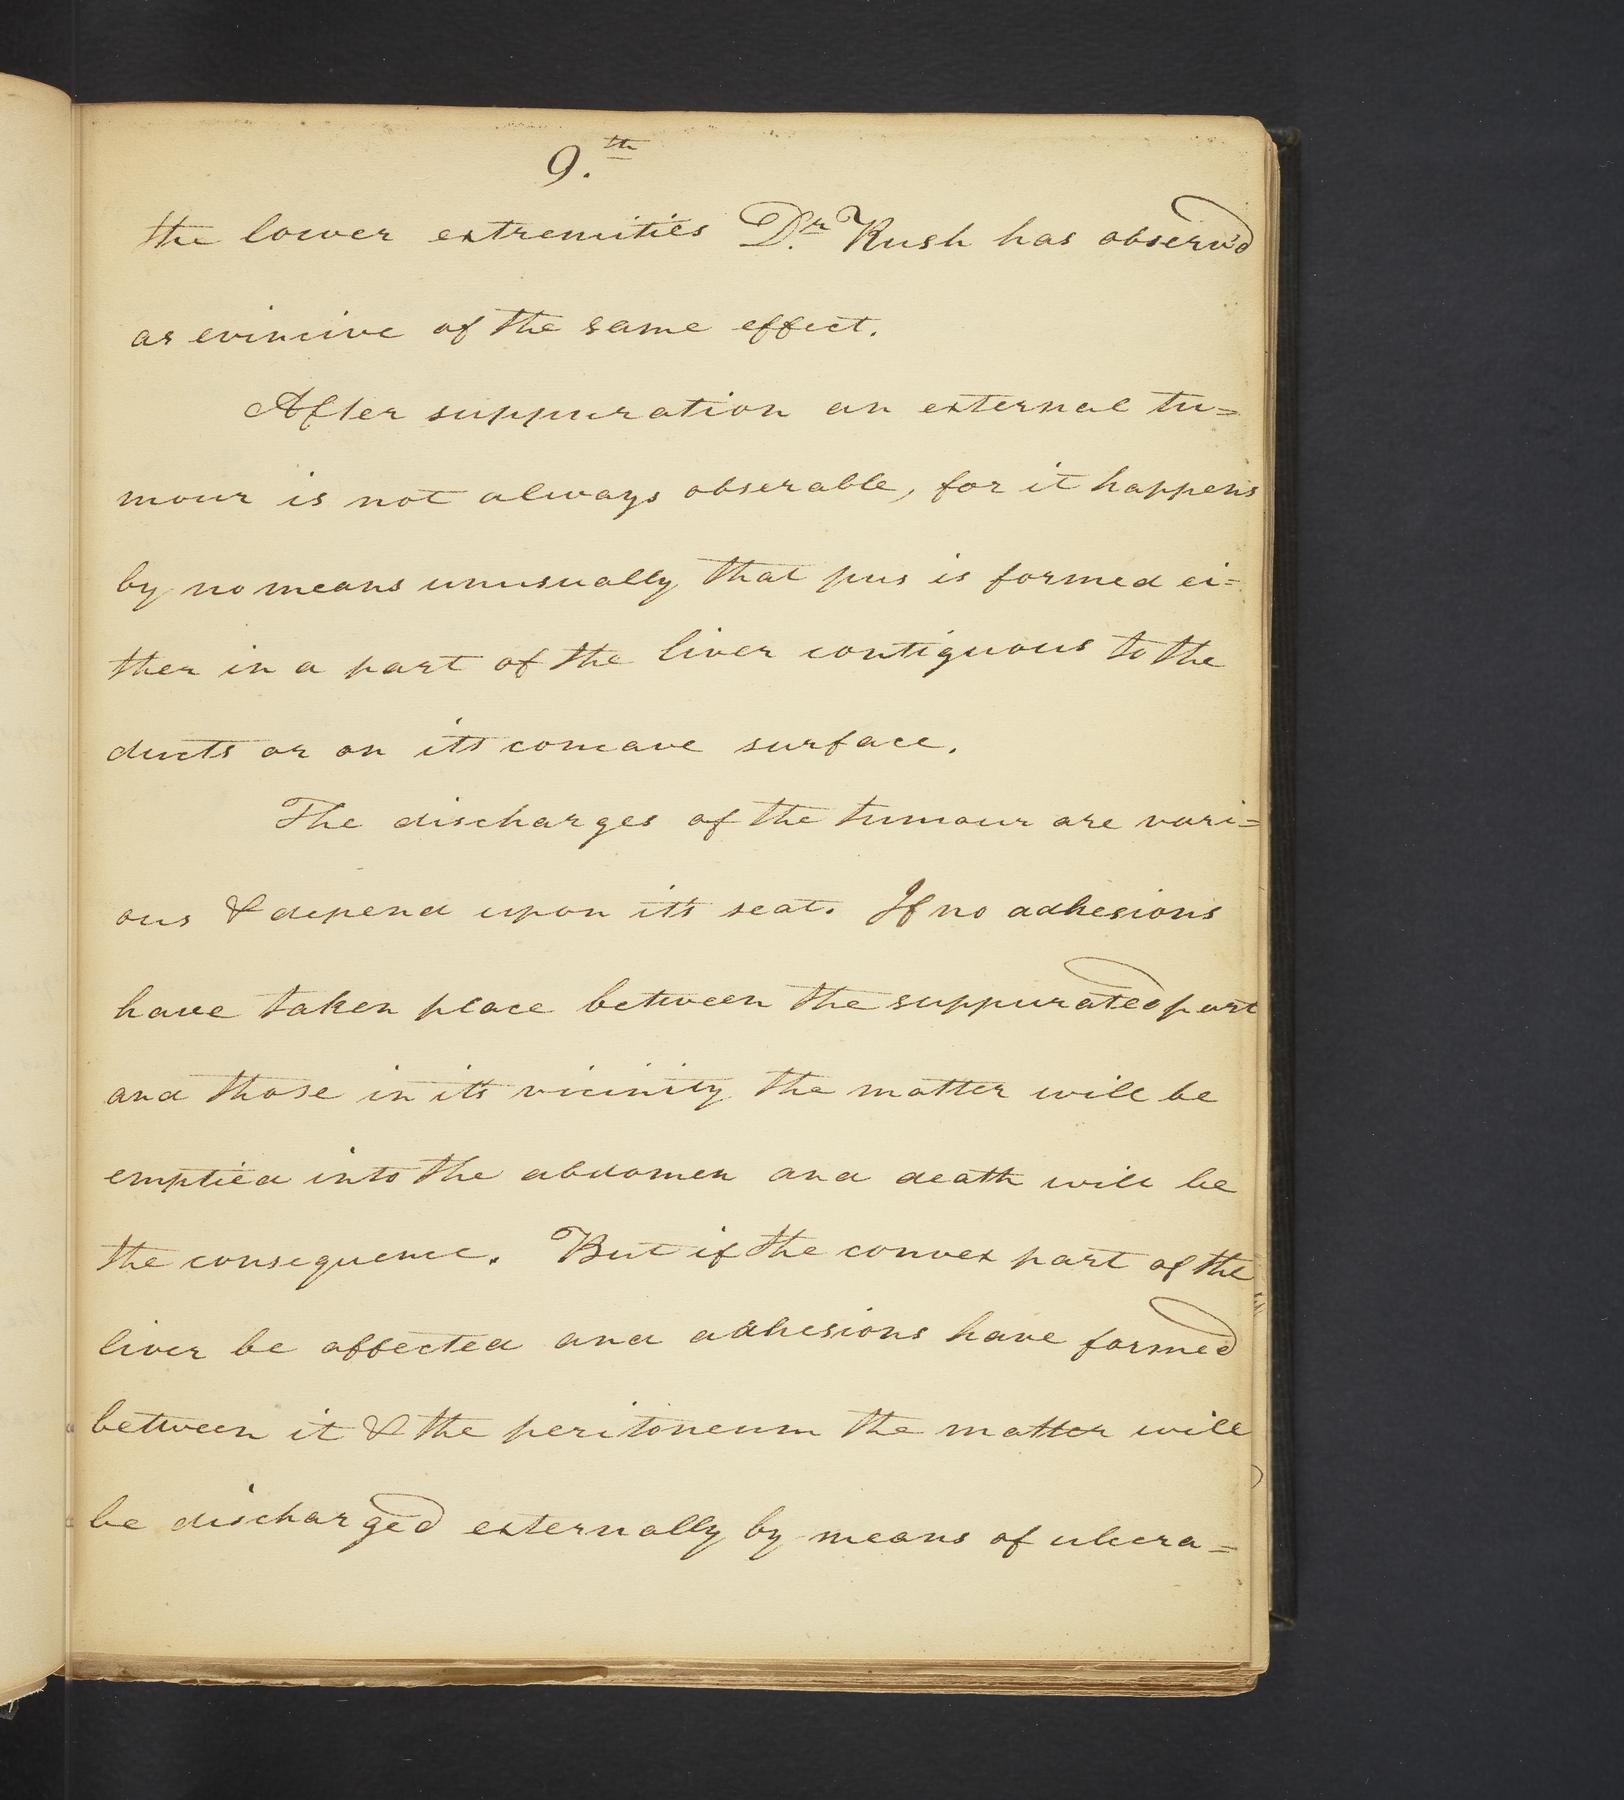 9.th
the lower extremities Dr. Rush has observ'd
as evincive of the same effect.
After suppuration an external tu=
mour is not always obserable, for it happens
by no means unusually that pus is formed ei=
ther in a part of the liver contiguous to the
ducts or on its concave surface.
The discharges of the tumour are vari=
ous & depend upon its seat. If no adhesions
have taken place between the suppurated part
and those in its vicinity the matter will be
emptied into the abdomen and death will be
the consequence. But if the convex part of the
liver be affected and adhesions have formed
between it & the peritoneum the matter will
be discharged externally by means of ulcera=